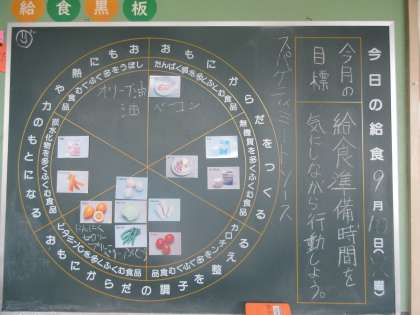 給食黒板
今日の給食 9月 日( 曜)
今月の目標
給食準備時間を
気にしながら行動しよう。
スパゲティミートソース
おもにからだをつくる
たんぱく質を多くふくむ食品
無機質を多くふくむ食品
おもにからだの調子を整える
カロテンを多くふくむ食品
ビタミンCを多くふくむ食品
おもに熱や力のもとになる
炭水化物を多くふくむ食品
しぼうを多くふくむ食品
ベーコン
オリーブ油
油
にんにく
セロリー